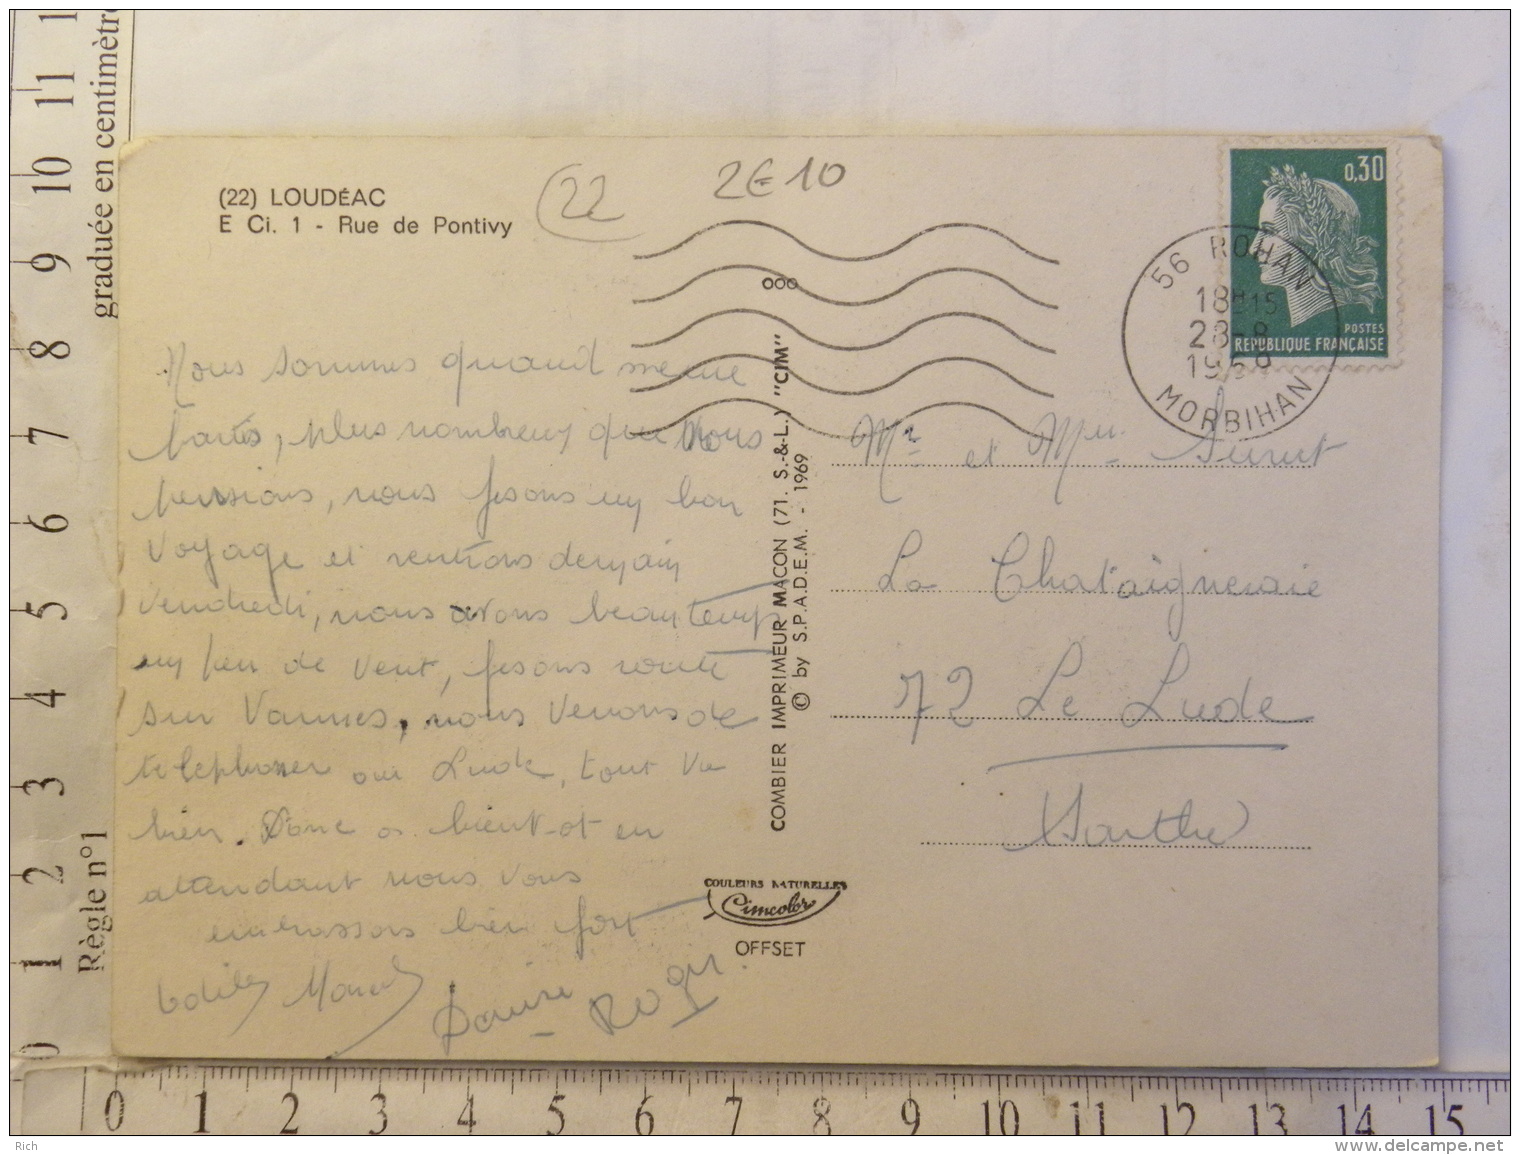 (22) LOUDÉAC
E Ci. 1 - Rue de Pontivy
22
2€10
0,30
POSTES
REPUBLIQUE FRANÇAISE
56 ROHAN
18H15
28-8
1969
MORBIHAN
Nous sommes quand même
partis, plus nombreux que nous
pensions, nous fesons un bon
voyage et rentrons demain
Vendredi, nous avons beau temps
un peu de vent, fesons route
sur Vannes, nous venons de
telephoner au Lude, tout va
bien. Donc a bient-ot en
attendant nous vous
embrassons bien fort
Odile Marcel Denise Roger.
Mr et Mme
La Chataigneraie
72 Le Lude
Sarthe
COMBIER IMPRIMEUR MACON (71. S.-&-L.) "CIM"
© by S.P.A.D.E.M. - 1969
COULEURS NATURELLES
Cimcolor
OFFSET
graduée en centimètre
Règle n°1
0 1 2 3 4 5 6 7 8 9 10 11 1
0 1 2 3 4 5 6 7 8 9 10 11 12 13 14 15
Rich
delcampe.net